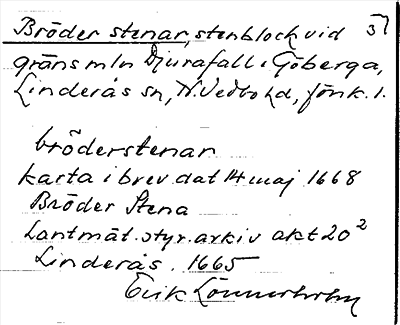 Bröder stenar, stenblock vid 51
gräns mln Djurafall o Göberga,
Linderås sn, N. Vedbo hd, Jönk. l.
bröderstenar
karta i brev dat 14 maj 1668
Bröder Stena
Lantmät. styr. arkiv akt 20²
Linderås. 1665
Erik Lönnerholm